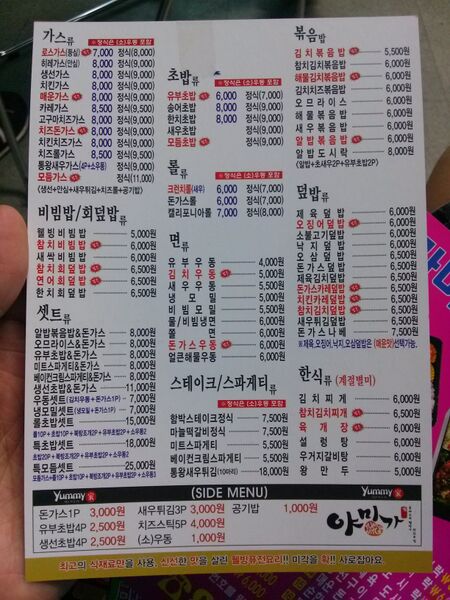 가스류 ※정식은 (소)우동 포함
로스가스(등심) 7,000 정식(8,000)
히레가스(안심) 8,000 정식(9,000)
생선가스 8,000 정식(9,000)
치킨가스 8,000 정식(9,000)
매운가스 8,000 정식(9,000)
카레가스 8,000 정식(9,000)
고구마치즈가스 8,000 정식(9,000)
치즈돈가스 8,000 정식(9,000)
치킨치즈가스 8,000 정식(9,000)
치즈롤가스 8,500 정식(9,500)
통왕새우가스(4P+소우동) 정식(9,000)
모듬가스 정식(11,000)
(생선+안심+새우튀김+치즈롤+공기밥)
비빔밥/회덮밥류
웰빙비빔밥 5,000원
참치비빔밥 6,000원
새싹비빔밥 6,000원
참치회덮밥 6,500원
연어회덮밥 6,500원
한치회덮밥 6,500원
셋트류
알밥볶음밥&돈가스 8,000원
오므라이스&돈가스 8,000원
유부초밥&돈가스 8,000원
미트스파게티&돈가스 8,000원
베이컨크림스파게티&돈가스
생선초밥&돈가스
우동셋트
냉모밀셋트
롤초밥셋트
특초밥셋트 18,000원
특모듬셋트 25,000원
초밥류 ※정식은 (소)우동 포함
유부초밥 6,000 정식(7,000)
송어초밥 8,000 정식(9,000)
한치초밥 8,000 정식(9,000)
새우초밥 정식(9,000)
모듬초밥 정식(9,000)
롤류 ※정식은 (소)우동 포함
크런치롤(새우) 6,000 정식(7,000)
돈가스롤 6,000 정식(7,000)
캘리포니아롤 6,000 정식(7,000)
면류
유부우동 4,000원
김치우동 5,000원
새우우동
냉모밀
비빔모밀
물/비빔냉면
쫄면
돈가스우동 6,000원
얼큰해물우동
스테이크/스파게티류
※정식은 (소)우동 포함
함박스테이크정식 7,500원
마늘떡갈비정식 7,500원
미트스파게티 5,500원
베이컨크림스파게티 5,500원
통왕새우튀김(10마리) 18,000원
볶음밥
김치볶음밥 5,500원
참치김치볶음밥 6,000원
해물김치볶음밥 6,000원
김치치즈볶음밥 6,000원
오므라이스 6,000원
해물볶음밥 6,000원
새우볶음밥 6,000원
알밥볶음밥 6,000원
알밥도시락 8,000원
(알밥+초새우2P+유부초밥2P)
덮밥류
제육덮밥 6,000원
오징어덮밥 6,000원
소불고기덮밥 6,000원
낙지덮밥 6,500원
오삼덮밥 6,500원
돈가스덮밥 6,500원
제육김치덮밥 6,500원
돈가스카레덮밥 6,500원
치킨카레덮밥 6,500원
참치김치덮밥 6,500원
새우튀김덮밥 7,000원
돈가스나베 7,500원
※제육,오징어,낙지,오삼덮밥은 (매운맛)선택가능.
한식류 (계절별미)
김치찌개 6,000원
참치김치찌개 6,000원
육개장 6,000원
설렁탕 6,000원
우거지갈비탕 6,000원
왕만두 5,000원
Yummy家 (SIDE MENU) Yummy家
돈가스1P 3,000원 새우튀김3P 3,000원 공기밥 1,000원
유부초밥4P 2,500원 치즈스틱5P 4,000원
생선초밥4P 2,500원 (소)우동 1,000원
야미가
최고의 식재료만을 사용, 신선한 맛을 살린 웰빙퓨전요리!! 미각을 확!! 사로잡아요